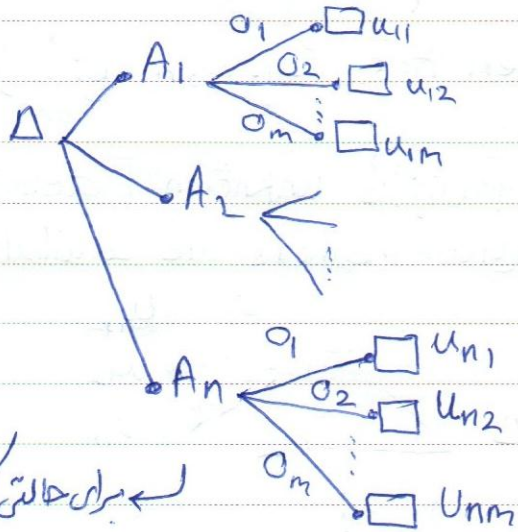 O1 u11
A1 O2 u12
Δ Om u1m
A2
O1 un1
An O2 un2
Om unm
برای حالتی